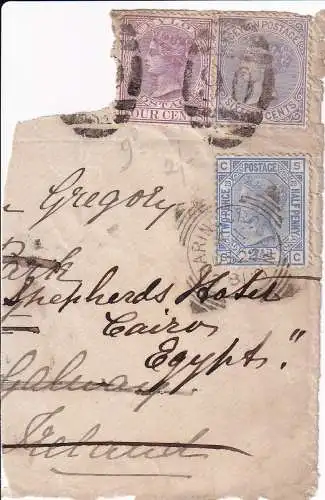 CEYLON POSTAGE
POSTAGE
FOUR CENTS
SIX CENTS
9 2/-
C POSTAGE S
TWO PENCE HALF PENNY
S 2½ C
Gregory
Park
Shepherds Hotel
Cairo
Egypt."
Galway
Ireland